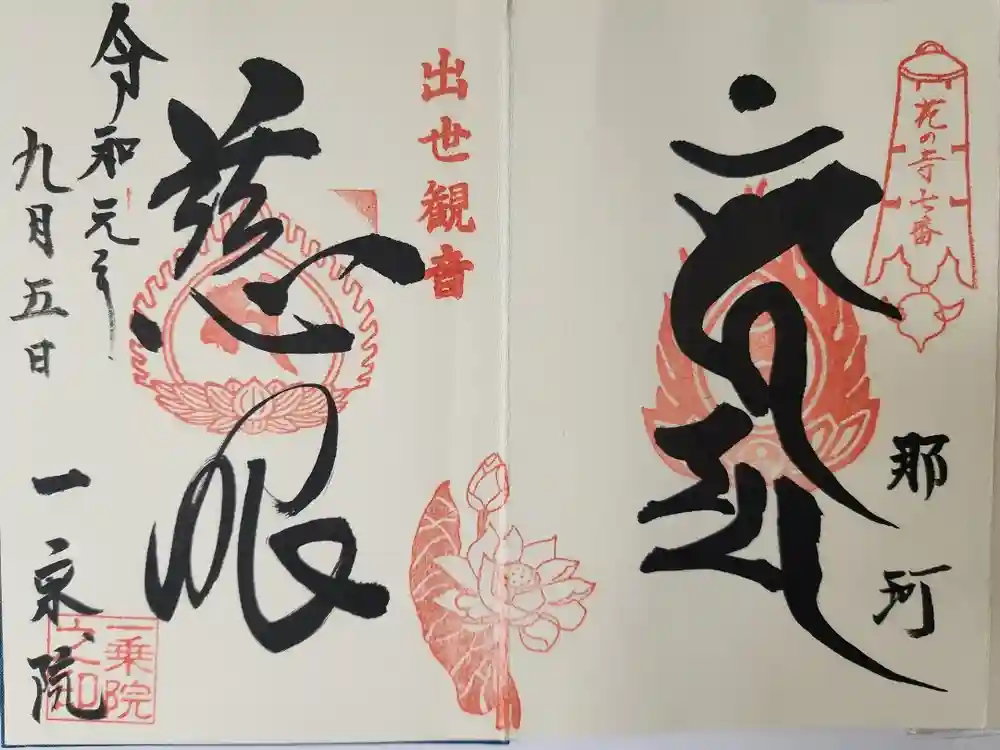 花の寺七番
那珂
出世観音
慈眼
令和元年
九月五日
一乗院
一乗院
之印